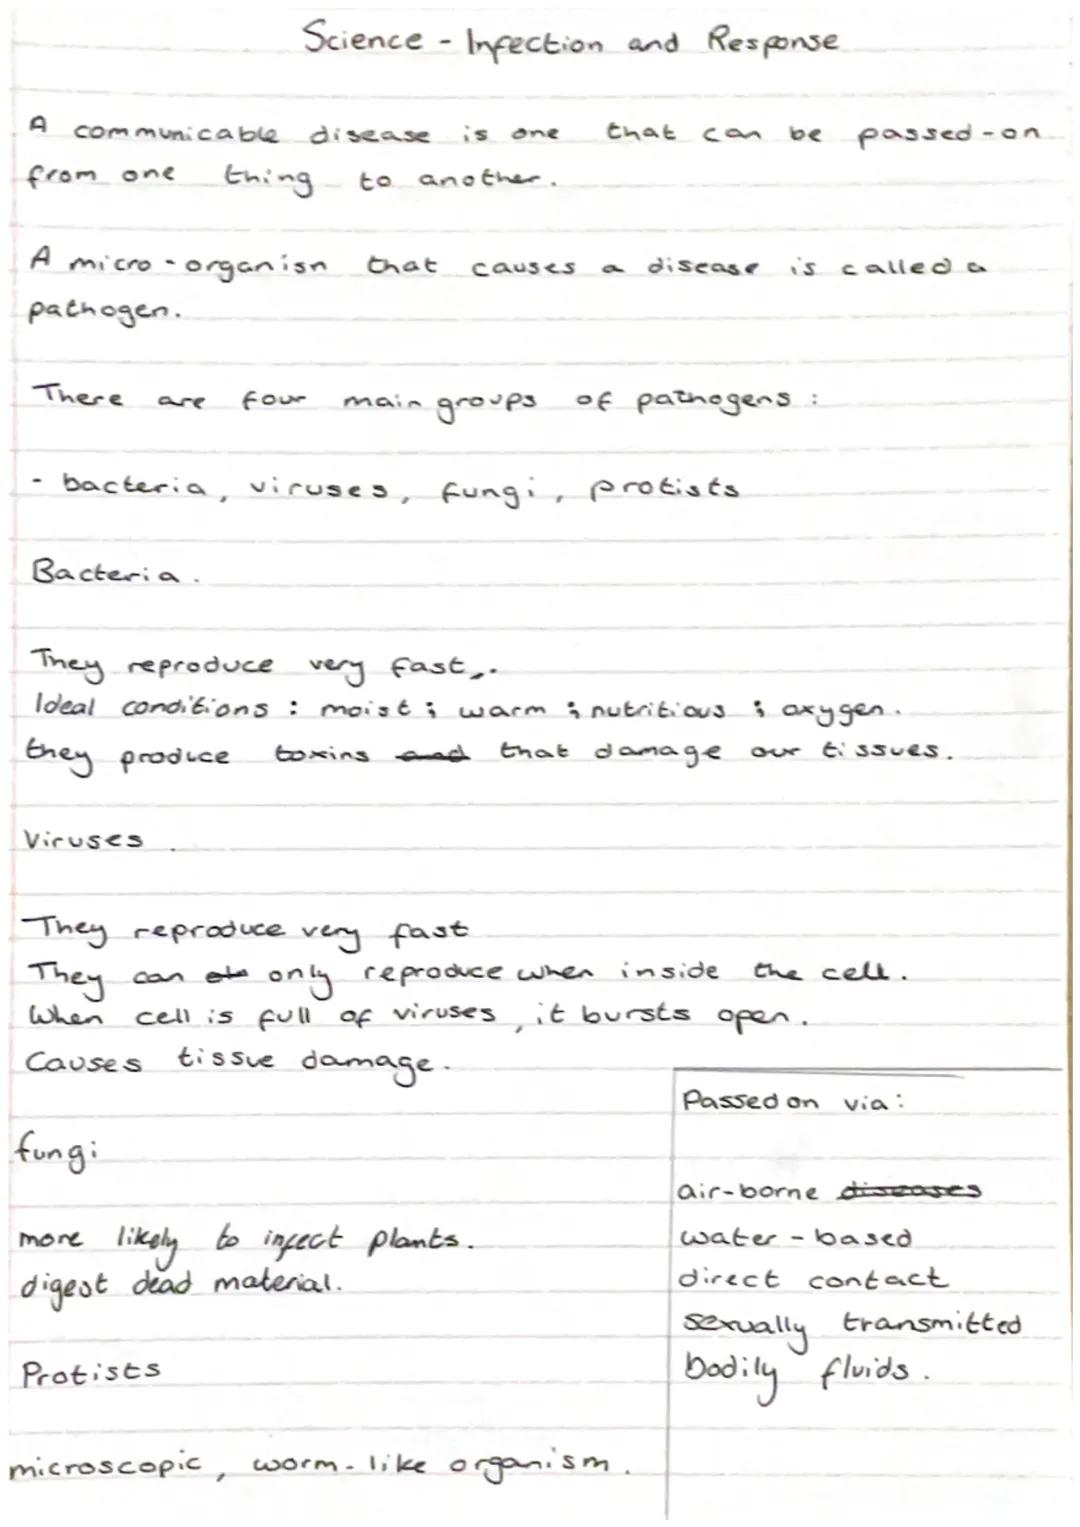 Science - Infection and Response
A communicable disease is one that can be passed-on
from one thing to another.
A micro-organisn that causes a disease is called a
pathogen.
There are four main groups of pathogens :
- bacteria, viruses, fungi, protists
Bacteria.
They reproduce very fast,.
Ideal conditions : moist ; warm ; nutritious ; oxygen.
they produce toxins and that damage our tissues.
Viruses.
They reproduce very fast
They can only reproduce when inside the cell.
When cell is full of viruses, it bursts open.
Causes tissue damage.
fungi
more likely to infect plants.
digest dead material.
Protists
microscopic, worm-like organism.
Passed on via:
air-borne diseases
water-based
direct contact
sexually transmitted
bodily fluids.